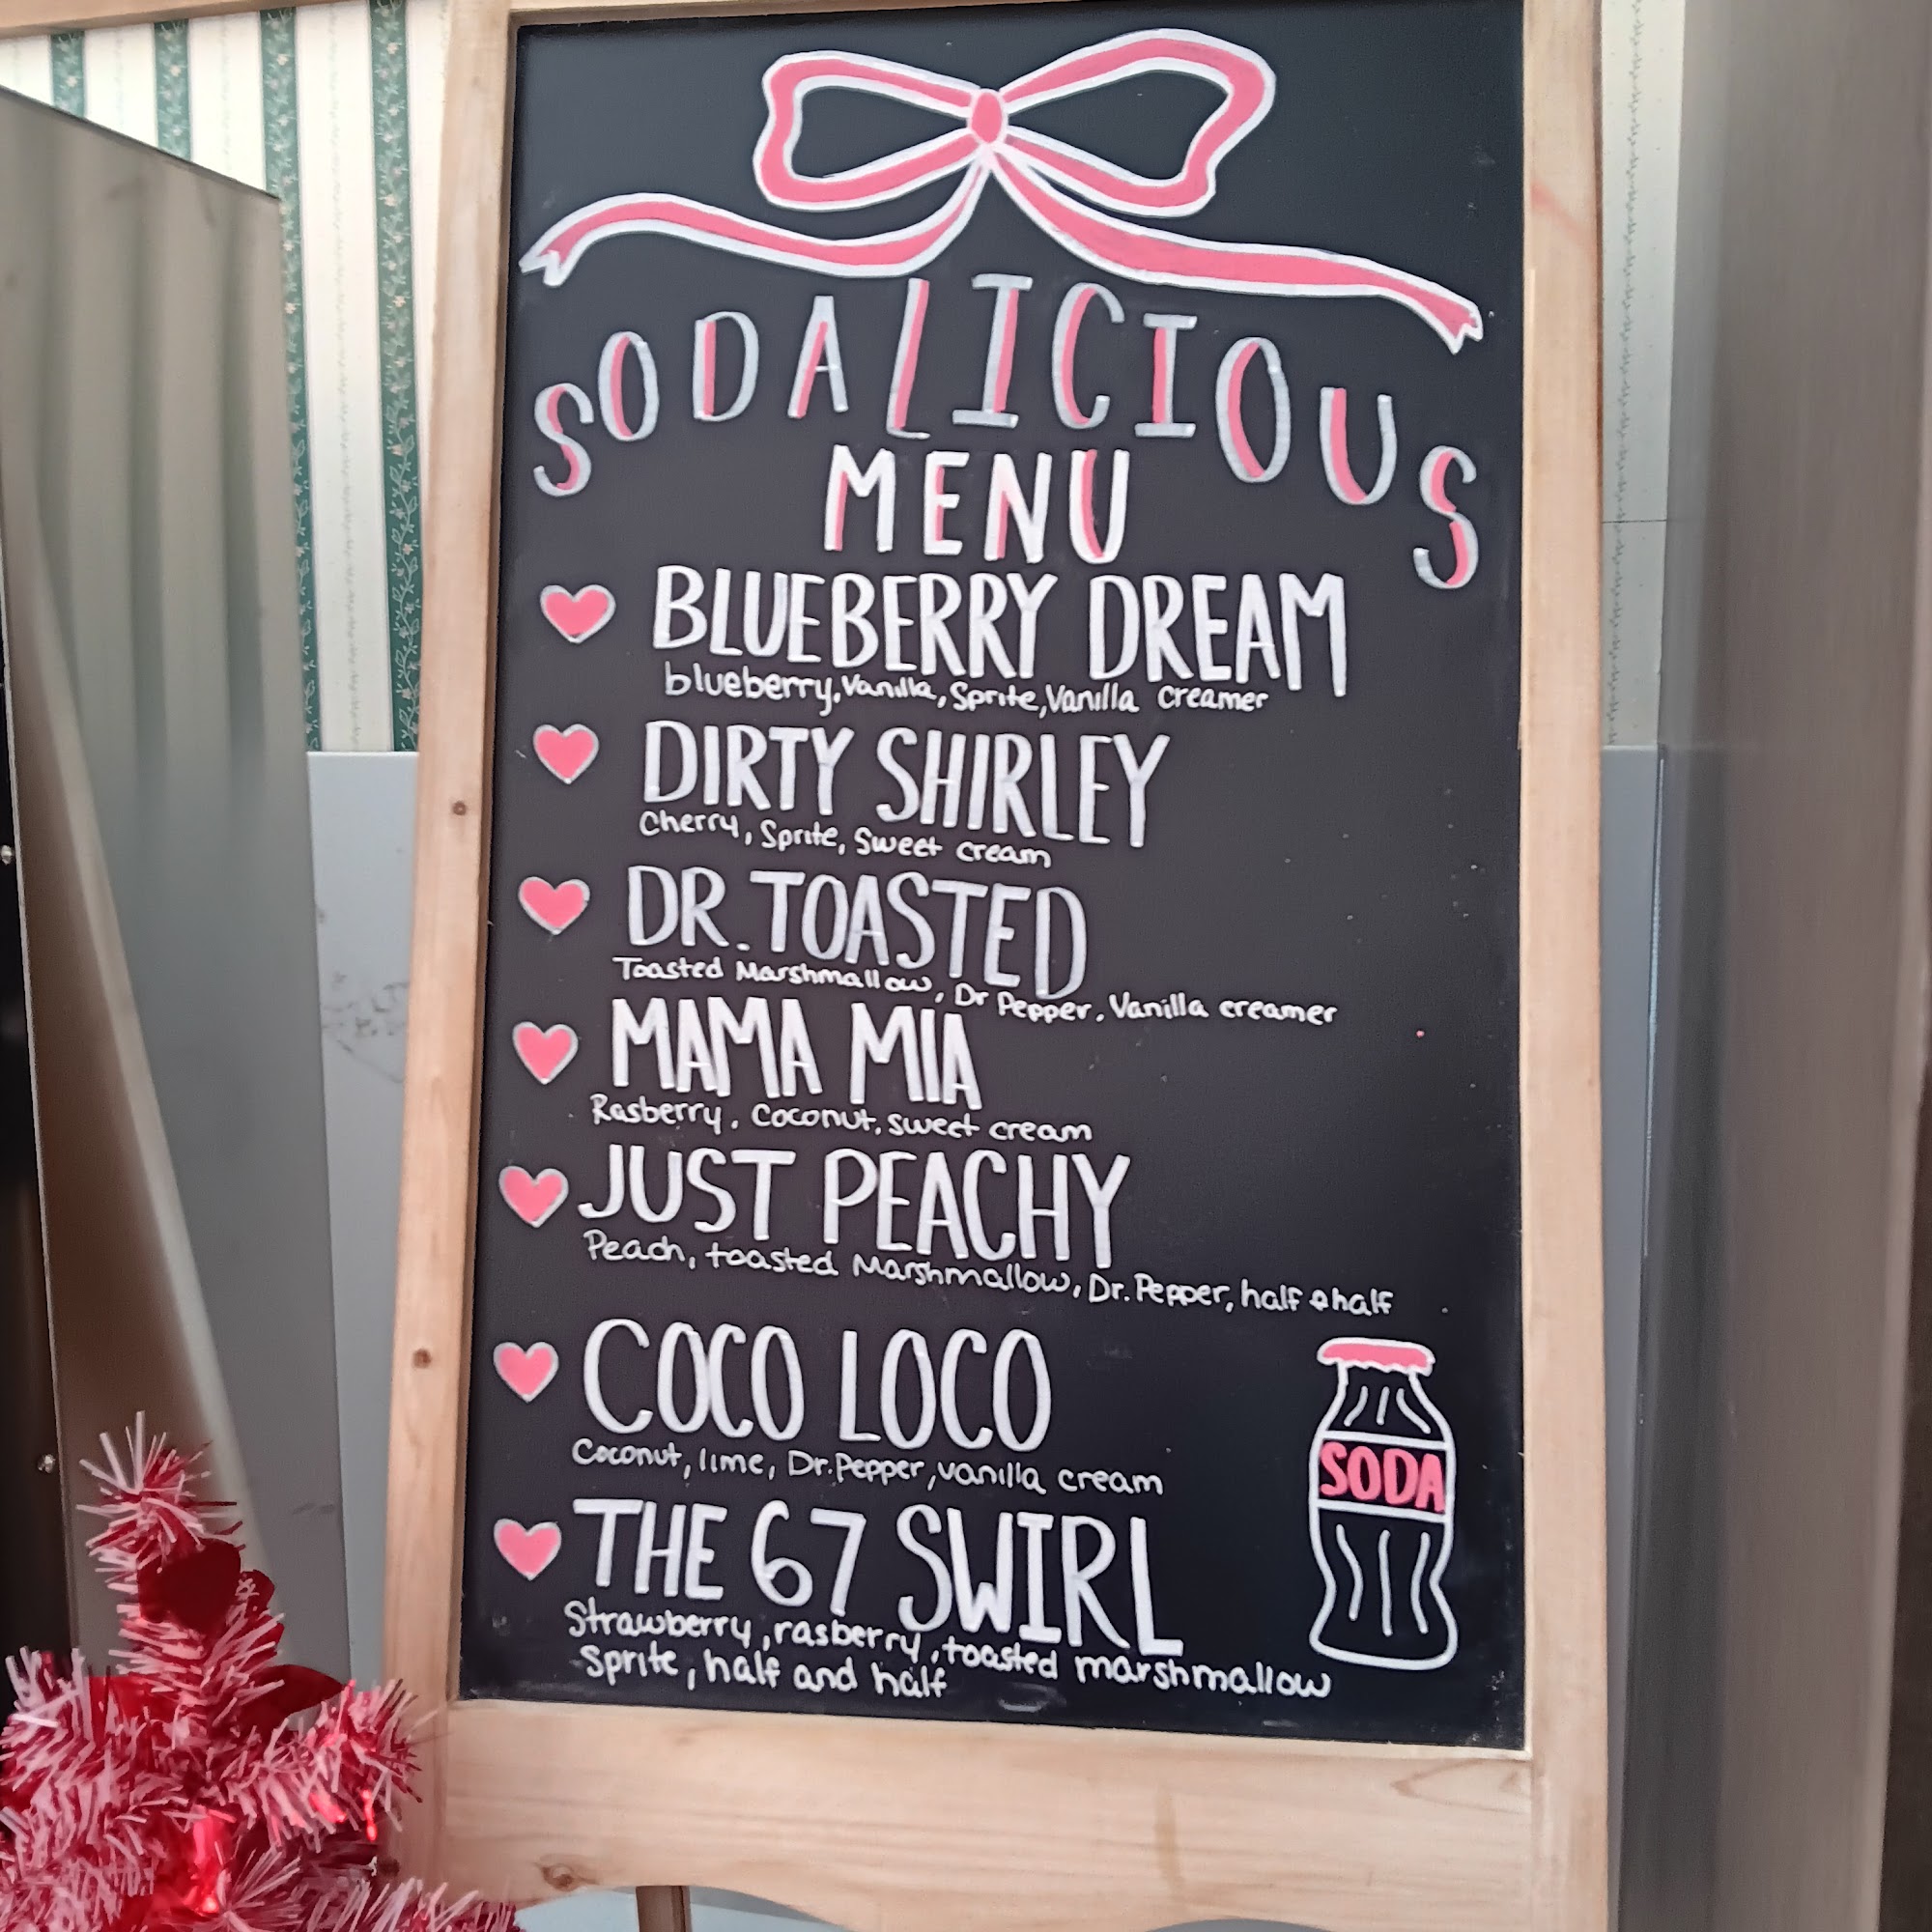 SODALICIOUS
MENU
BLUEBERRY DREAM
blueberry, Vanilla, Sprite, Vanilla creamer
DIRTY SHIRLEY
Cherry, Sprite, Sweet cream
DR. TOASTED
Toasted Marshmallow, Dr Pepper, Vanilla creamer
MAMA MIA
Rasberry, Coconut, sweet cream
JUST PEACHY
Peach, toasted Marshmallow, Dr. Pepper, half & half
COCO LOCO
Coconut, lime, Dr. Pepper, vanilla cream
THE 67 SWIRL
Strawberry, rasberry, toasted marshmallow
Sprite, half and half
SODA